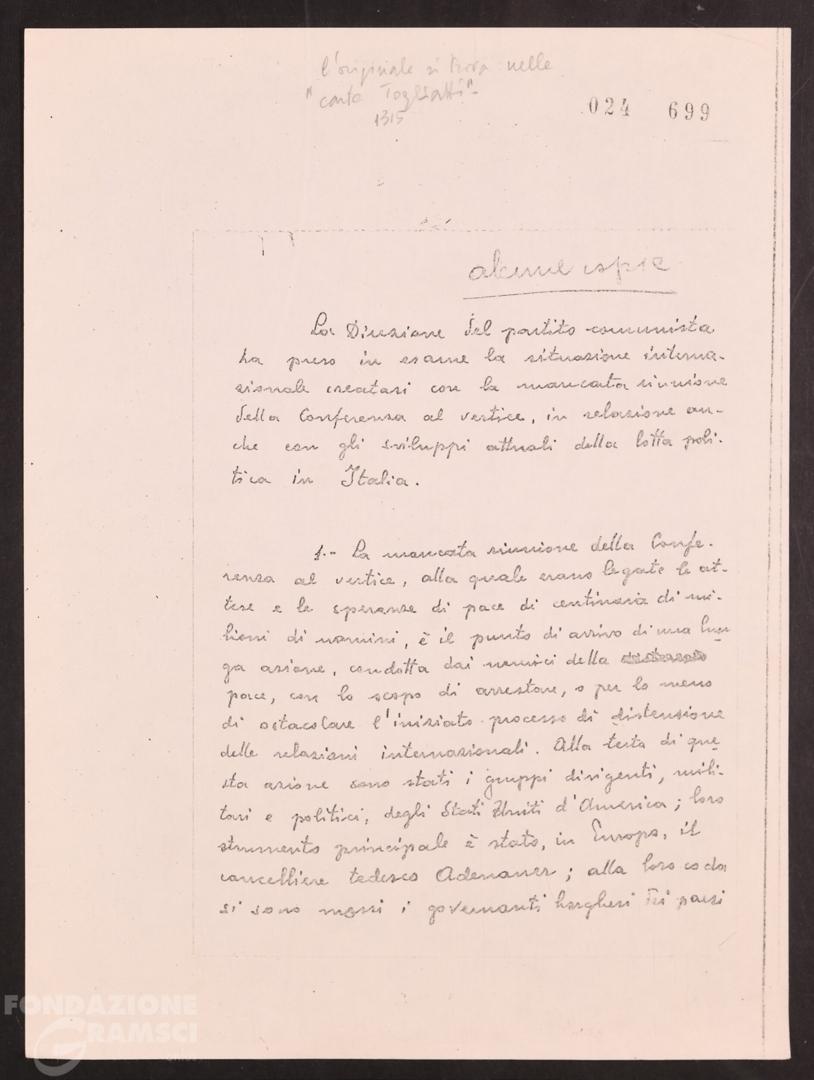 l'originale si trova nelle
"carte Togliatti"-
1315
024 699
alcune copie
La Direzione del partito comunista
ha preso in esame la situazione interna-
zionale creatasi con la mancata riunione
della Conferenza al vertice, in relazione an-
che con gli sviluppi attuali della lotta poli-
tica in Italia.
1.- La mancata riunione della Confe-
renza al vertice, alla quale erano legate le at-
tese e le speranze di pace di centinaia di mi-
lioni di uomini, è il punto di arrivo di una lun
ga azione, condotta dai nemici della
pace, con lo scopo di arrestare, o per lo meno
di ostacolare l'iniziato processo di distensione
delle relazioni internazionali. Alla testa di que
sta azione sono stati i gruppi dirigenti, mili-
tari e politici, degli Stati Uniti d'America; loro
strumento principale è stato, in Europa, il
cancelliere tedesco Adenauer; alla loro coda
si sono mossi i governanti borghesi dei paesi
FONDAZIONE
GRAMSCI